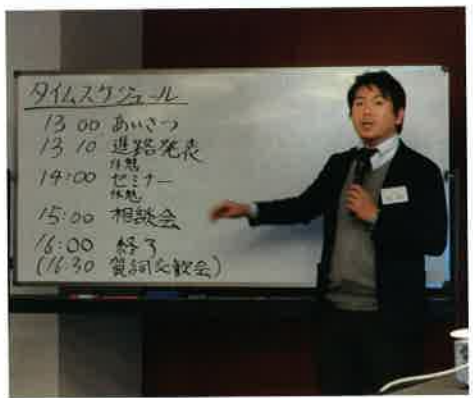 タイムスケジュール
13 00 あいさつ
13 10 進路発表
休憩
14:00 セミナー
休憩
15:00 相談会
16:00 終了
(16:30 賀詞交歓会)